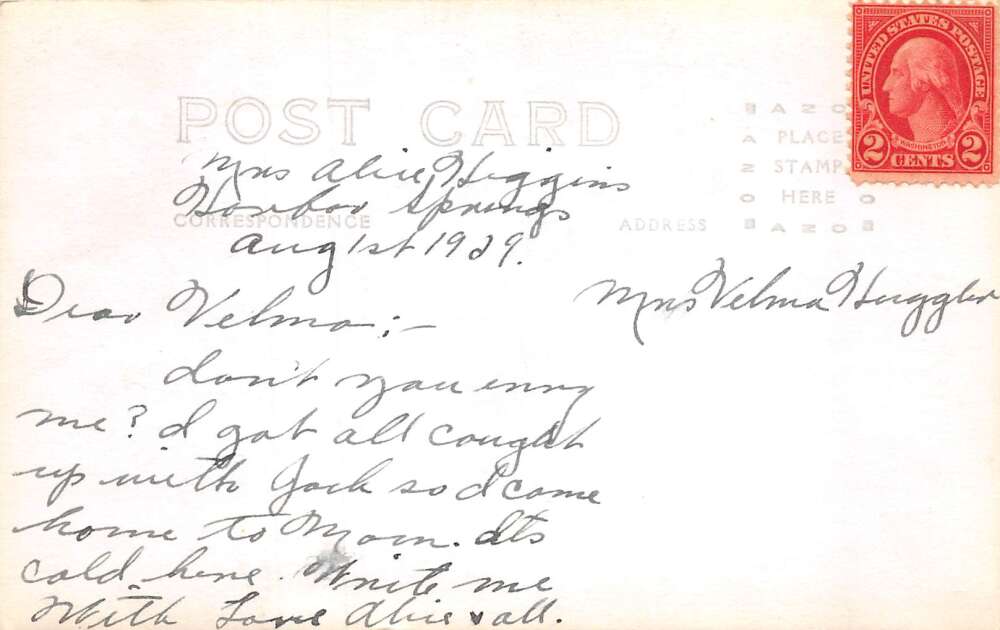 UNITED STATES POSTAGE
WASHINGTON
2 CENTS 2
POST CARD
AZO
PLACE
STAMP
HERE
AZO
CORRESPONDENCE
ADDRESS
Mrs Alice Higgins
Harbor Springs
Aug 1st 1929.
Mrs Velma Huggler
Dear Velma:-
don't you envy
me? I got all caught
up with Jack so I came
home to Mom. Its
cold here. Write me
With Love Alice & all.